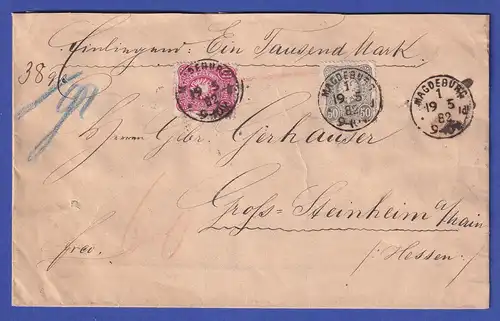 Einliegend: Ein Tausend Mark.
38 gr
MAGDEBURG
1
19 5
82
MAGDEBURG
1
19 5
82
50 50
MAGDEBURG
1
19 5
82
Herren Gebr. Gerhäuser
Gross-Steinheim a/Main
frco.
/:Hessen:/